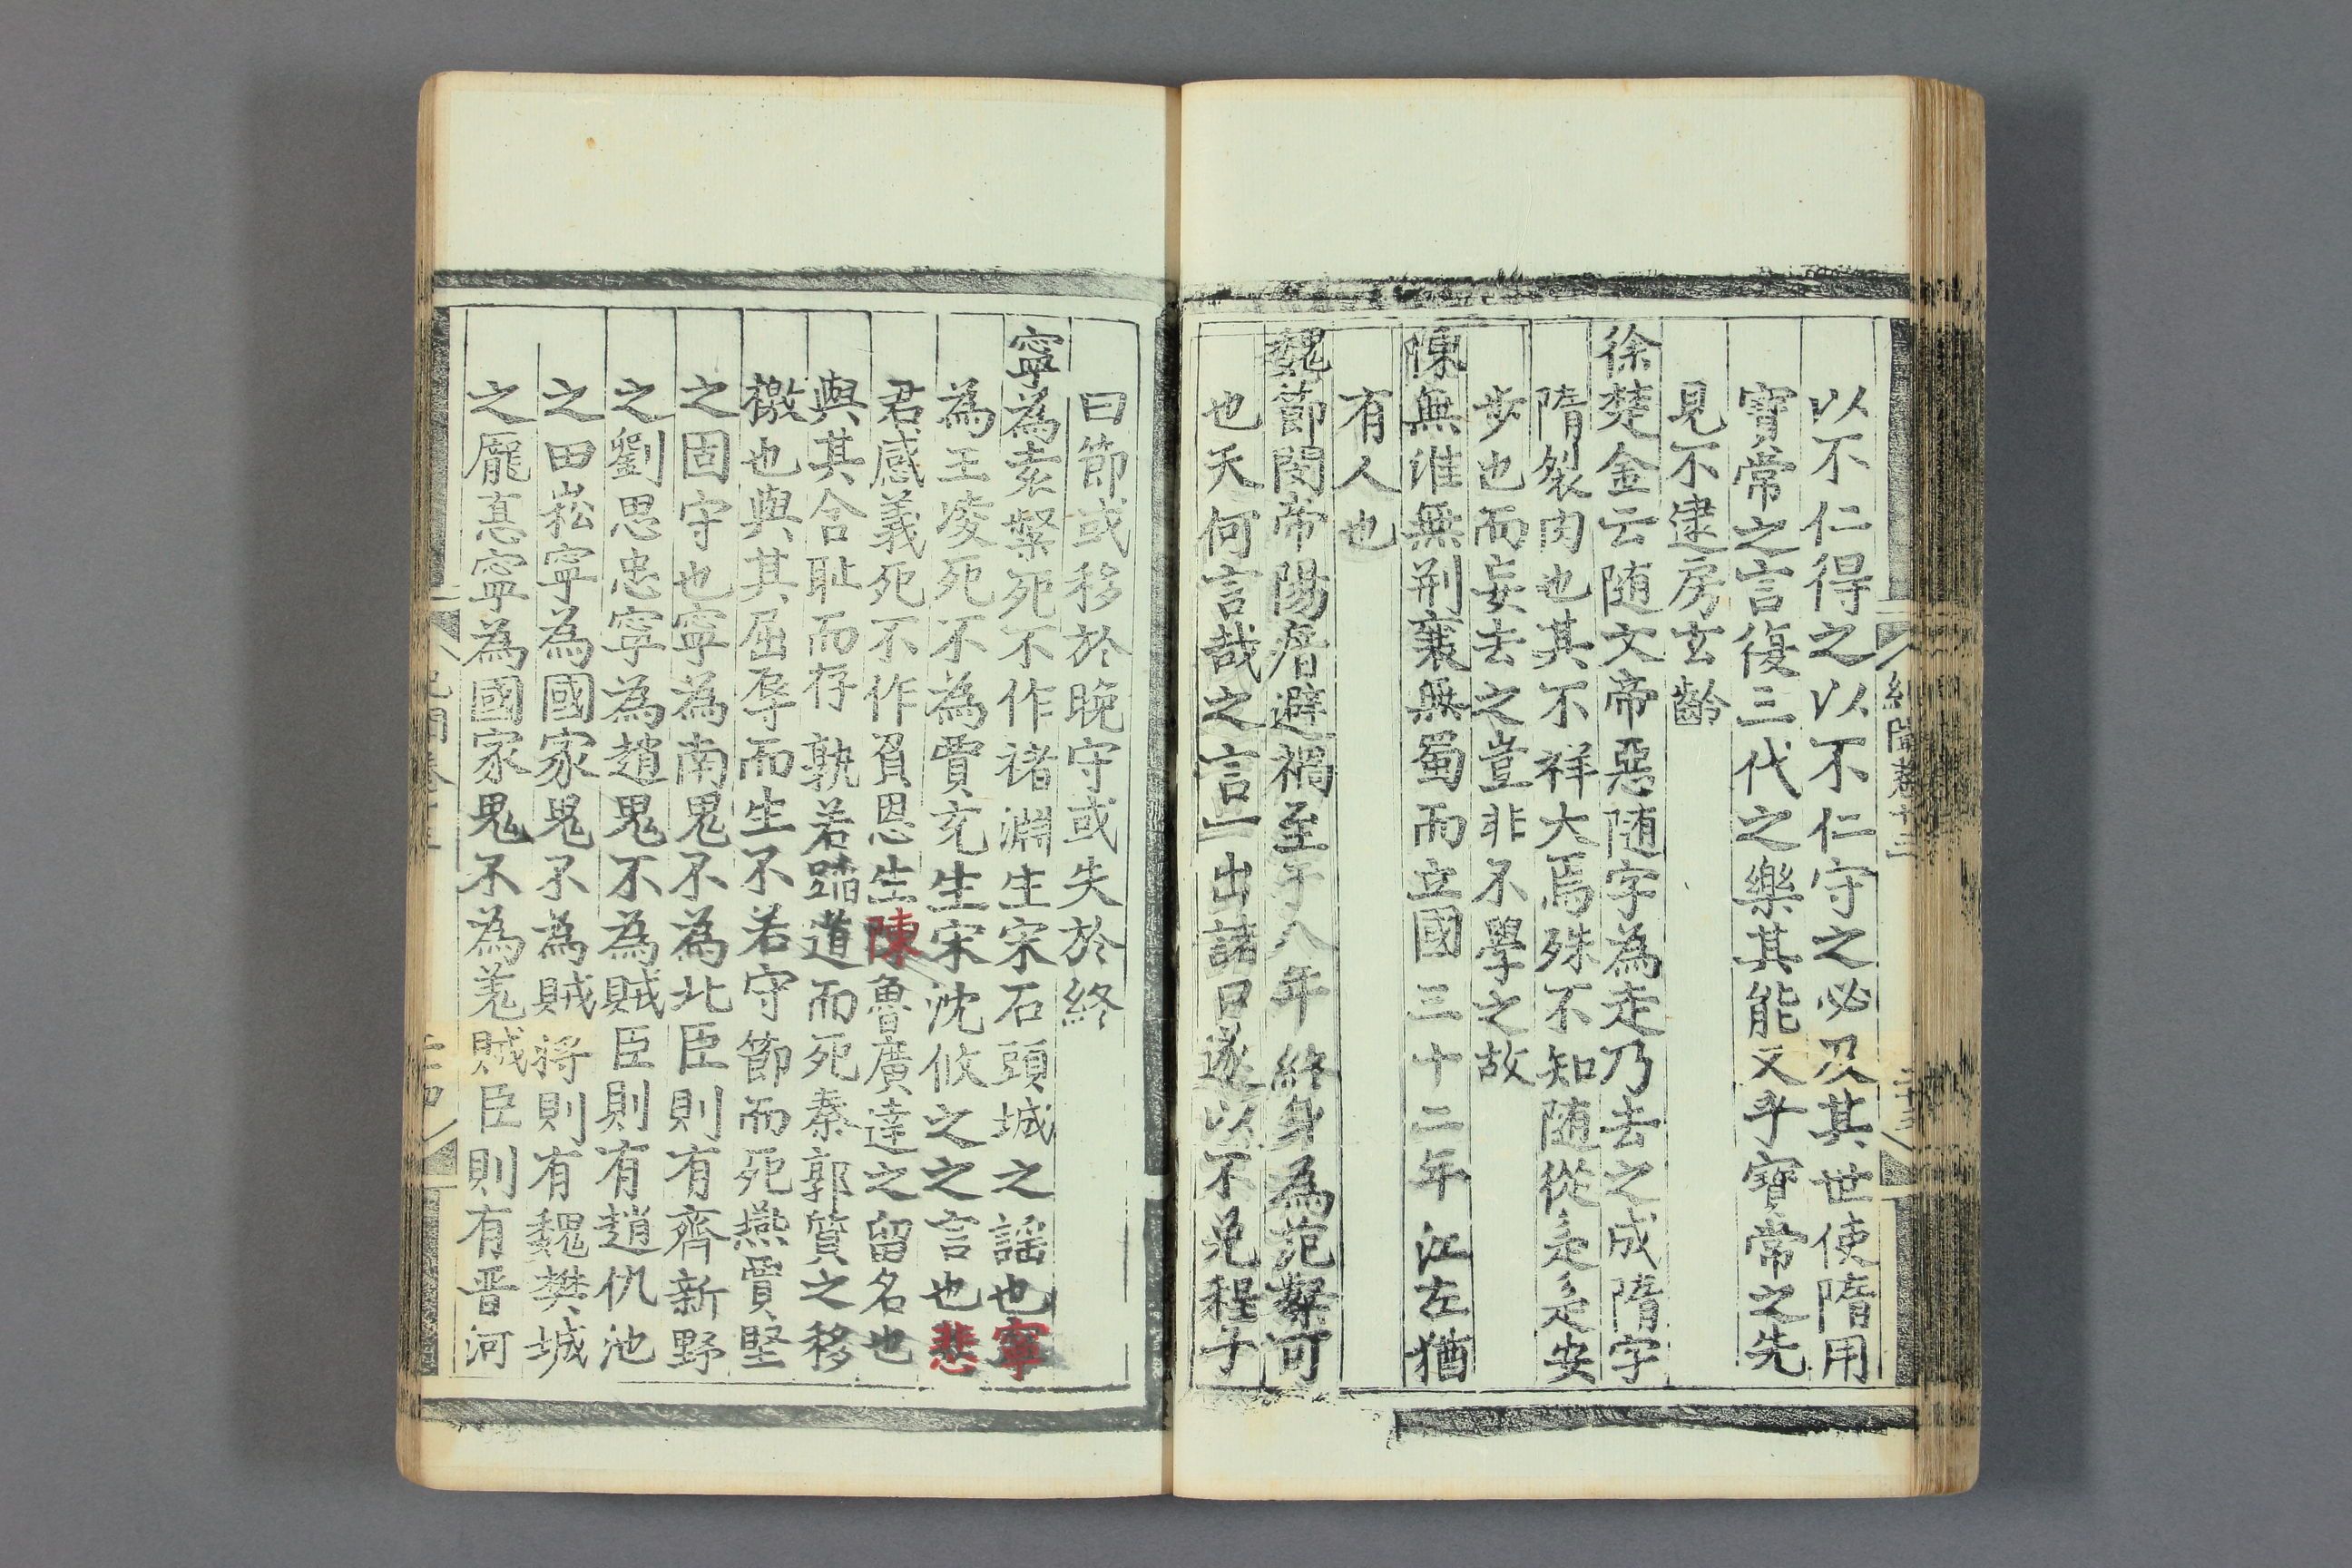 以不仁得之以不仁守之必及其世使隋用
寶常之言復三代之樂其能久乎寶常之先
見不逮房玄齡
徐楚金云随文帝惡随字為走乃去之成隋字
隋裂肉也其不祥大焉殊不知随從辵辵安
步也而妄去之豈非不學之故
陳無淮無荆襄無蜀而立國三十二年江左猶
有人也
魏節閔帝陽瘖避禍至于八年終身為范粲可
也天何言哉之言一出諸口遂以不免程子
曰節或移於晚守或失於終
寧為袁粲死不作褚淵生宋石頭城之謡也寧
為王凌死不為賈充生宋沈攸之之言也悲
君感義死不作負恩生陳魯廣達之留名也
與其含耻而存孰若蹈道而死秦郭質之移
檄也與其屈辱而生不若守節而死燕賈堅
之固守也寧為南鬼不為北臣則有齊新野
之劉思忠寧為趙鬼不為賊臣則有趙仇池
之田崧寧為國家鬼不為賊將則有魏樊城
之龐悳寧為國家鬼不為羌賊臣則有晋河